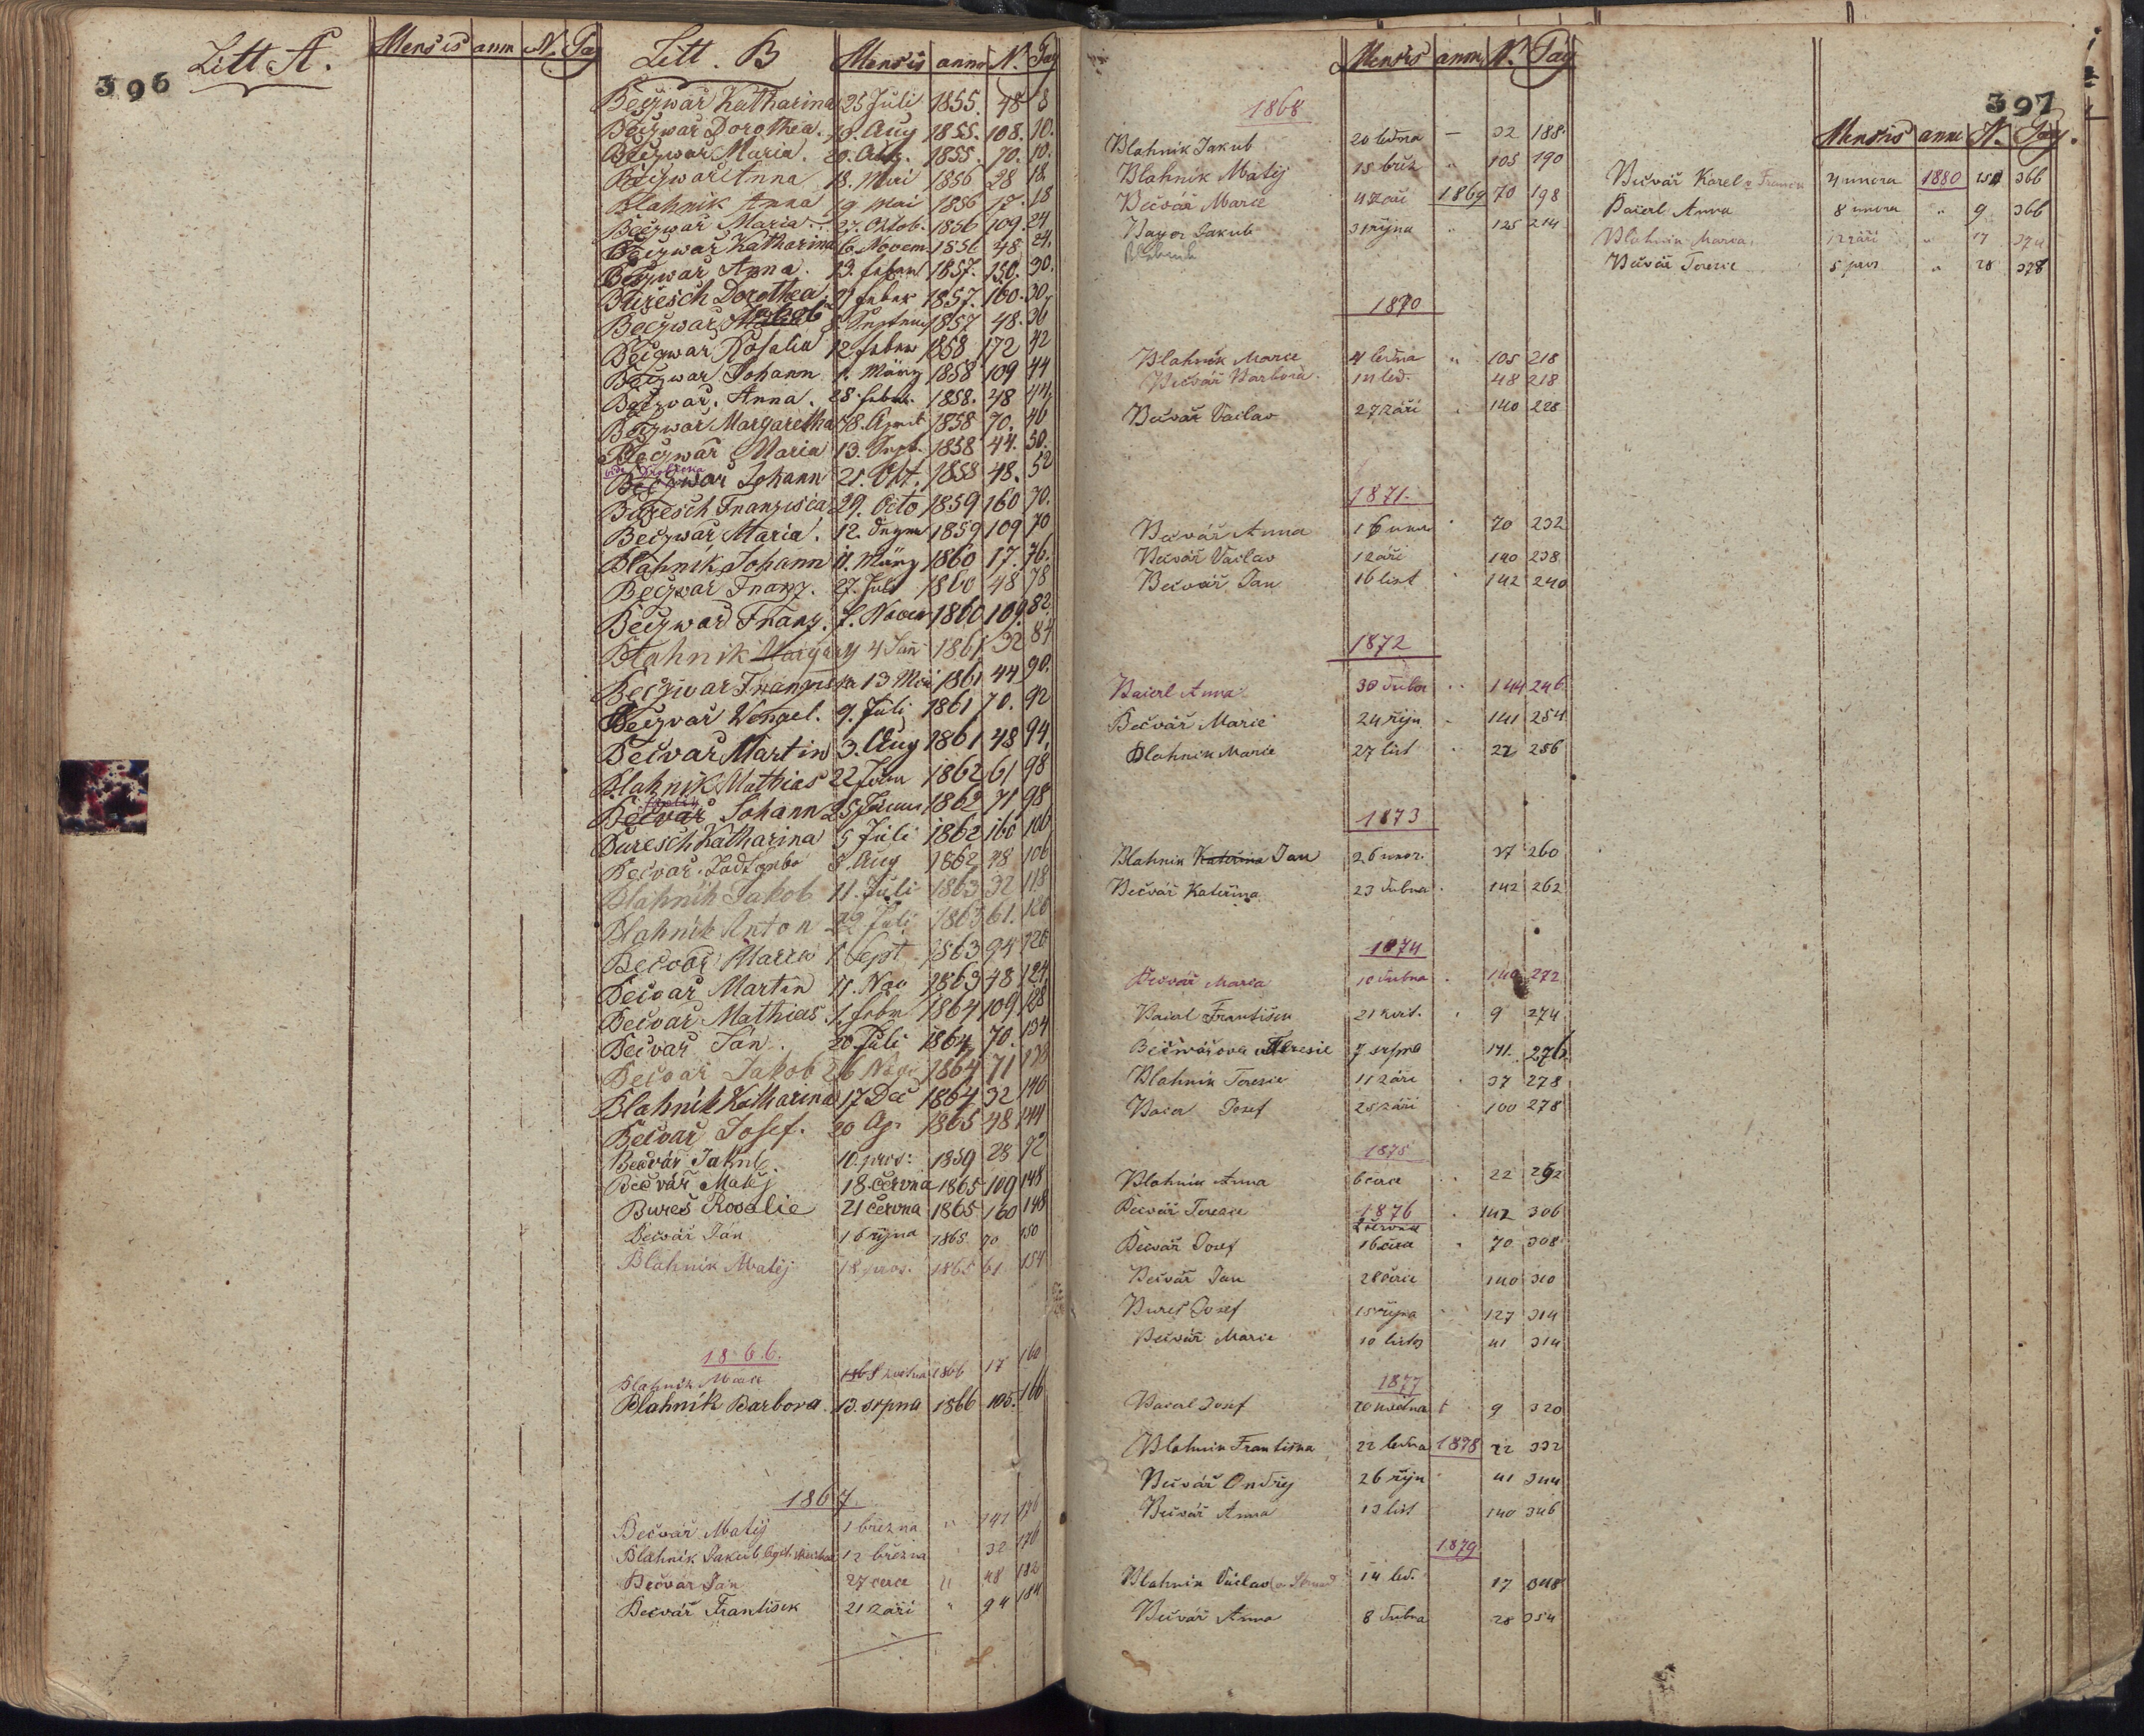 396
Litt. A.
Mensis anni N. Pag
Litt. B
Mensis anno N. Pag
Beczwař Katharina 25 Juli 1855. 48 8
Beczwar Dorothea. 18. Aug 1855. 108. 10.
Beczwar Maria. 20. 1855. 70. 10.
Beczwar Anna 18. 1856 28 18.
Blahnik Anna 9 Mai 1856 17. 18
Beczwar Maria. 27. Octob. 1856 109. 24
Beczwar Katharina 6. Novem 1856 48. 24.
Beczwar Anna. 19. feber 1857. 150. 30.
Buresch Dorothea. 21 feber 1857. 160. 30,
Beczwar 1857 48. 36
Beczwar Rosalia 12 feber 1858 172 42
Beczwar Johann 1. März 1858 109 44
Beczwar. Anna. 28. feber. 1858. 48 44,
Beczwar Margaretha 18. April 1858 70. 46
Beczwar Maria 13. Sept. 1858 44. 50.
Beczwar Johann 21. Okt. 1858 48. 52
Buresch Franzisca 29. Octo 1859 160 70.
Beczwar Maria. 12. 1859 109 70
Blahnik Johann 11. März 1860 17. 76.
Beczwar Franz. 27. Juli 1860 48 78
Beczwar Franz. 7. Novem 1860 109. 82.
Blahnik 4 Jan 1861 32 84
Beczwar 13 1861 44 90.
Beczvar Wenzel. 9. Juli 1861 70. 92
Bečvar Martin 3. Aug 1861 48 94,
Blahnik Mathias 22 Jan 1862 61 98
Bečvař Johann 25 1862 71 98
Buresch Katharina 5 Juli 1862 160 106
Bečvar. 8. Aug 1862 48 106
Blahnik Jakob 11. Juli 1863 32 118
Blahnik Anton 22 Juli 1863 61. 120
Bečvař Maria 1 Sept 1863 94 120
Bečvař Martin 11. Nov 1863 48 124,
Bečvar Mathias 1. feber 1864 109 128
Bečvař Jan. 20. Juli 1864 70. 134
Bečvař Jakob 26 1864 71
Blahnik Katharina 17 Dec 1864 32 140
Bečvař Josef. 20 Ap. 1865 48 144
Bečvář Jakub. 10. pros: 1859 28 72
Bečvář Matěj 18. června 1865 109 148
Bureš Rosalie 21 června 1865 160 148
Bečvář Ján 16 října 1865 70 150
Blahník Matěj 18. pros. 1865 61 154
1866.
Blahník května 1866 17 160
Blahník Barbora 13. srpna 1866 105. 166
1867.
Bečvář Matěj 1 března " 141 176
Blahník Jakub 12 března " 32 176
Bečvář Ján 27 " 48 182
Bečvář František 21 září " 94 184
Mensis anni N. Pag
1868
Blahník Jakub 20 ledna — 32 188.
Blahník Matěj 15 břez " 105 190
Bečvár Marie 1869 70 198
Bayer Jakub 31 října " 125 214
1870
Blahník Marie 4 ledna " 105 218
Bečvář Barbora. led. 48 218
Bečvář Václav 27 září 140 228
1871.
Bečvář Anna 16 70 232
Bečvář Václav 1 září 140 238
Bečvář Jan 16 list 142 240
1872
Baierl Anna 30 dubn 144 246
Bečvář Marie 24 říjn 141 254
Blahnik Marie 27 list 22 256
1873
Blahnik Kateřina Jan 26 únor. 37 260
Bečvár Kateřina 23 dubna 142 262
1874
Bečvár Maria 10 dubna 140 272
Baierl František 21 květ. 9 274
Bečwářova Teresie 7 srpna 141 276
Blahník Teresie 11 září 37 278
Baier Josef 25 září 100 278
1875
Blahník Anna 22 292
1876
Bečvář Terezie 2 června 142 306
Bečvář Josef 16 70 308
Bečvář Jan 28 140 310
Bureš Josef 15 října 127 314
Bečvář Marie 10 listop 41 314
1877
Baierl Josef 20 května 9 320
Blahnik Františka 22 ledna 1878 22 332
Bečvář Ondřej 26 říjn 41 344
Bečvář Anna 13 list 140 346
1879
Blahnik Václav 14 led. 17 348
Bečvář Anna 8 dubna 28 354
397
Mensis anni N. Pag.
Bečvář Karel 4 února 1880 366
Baierl Anna 8 února " 9 366
Blahnik Maria 12 září " 17 374
Bečvář Terezie 5 pros " 28 378